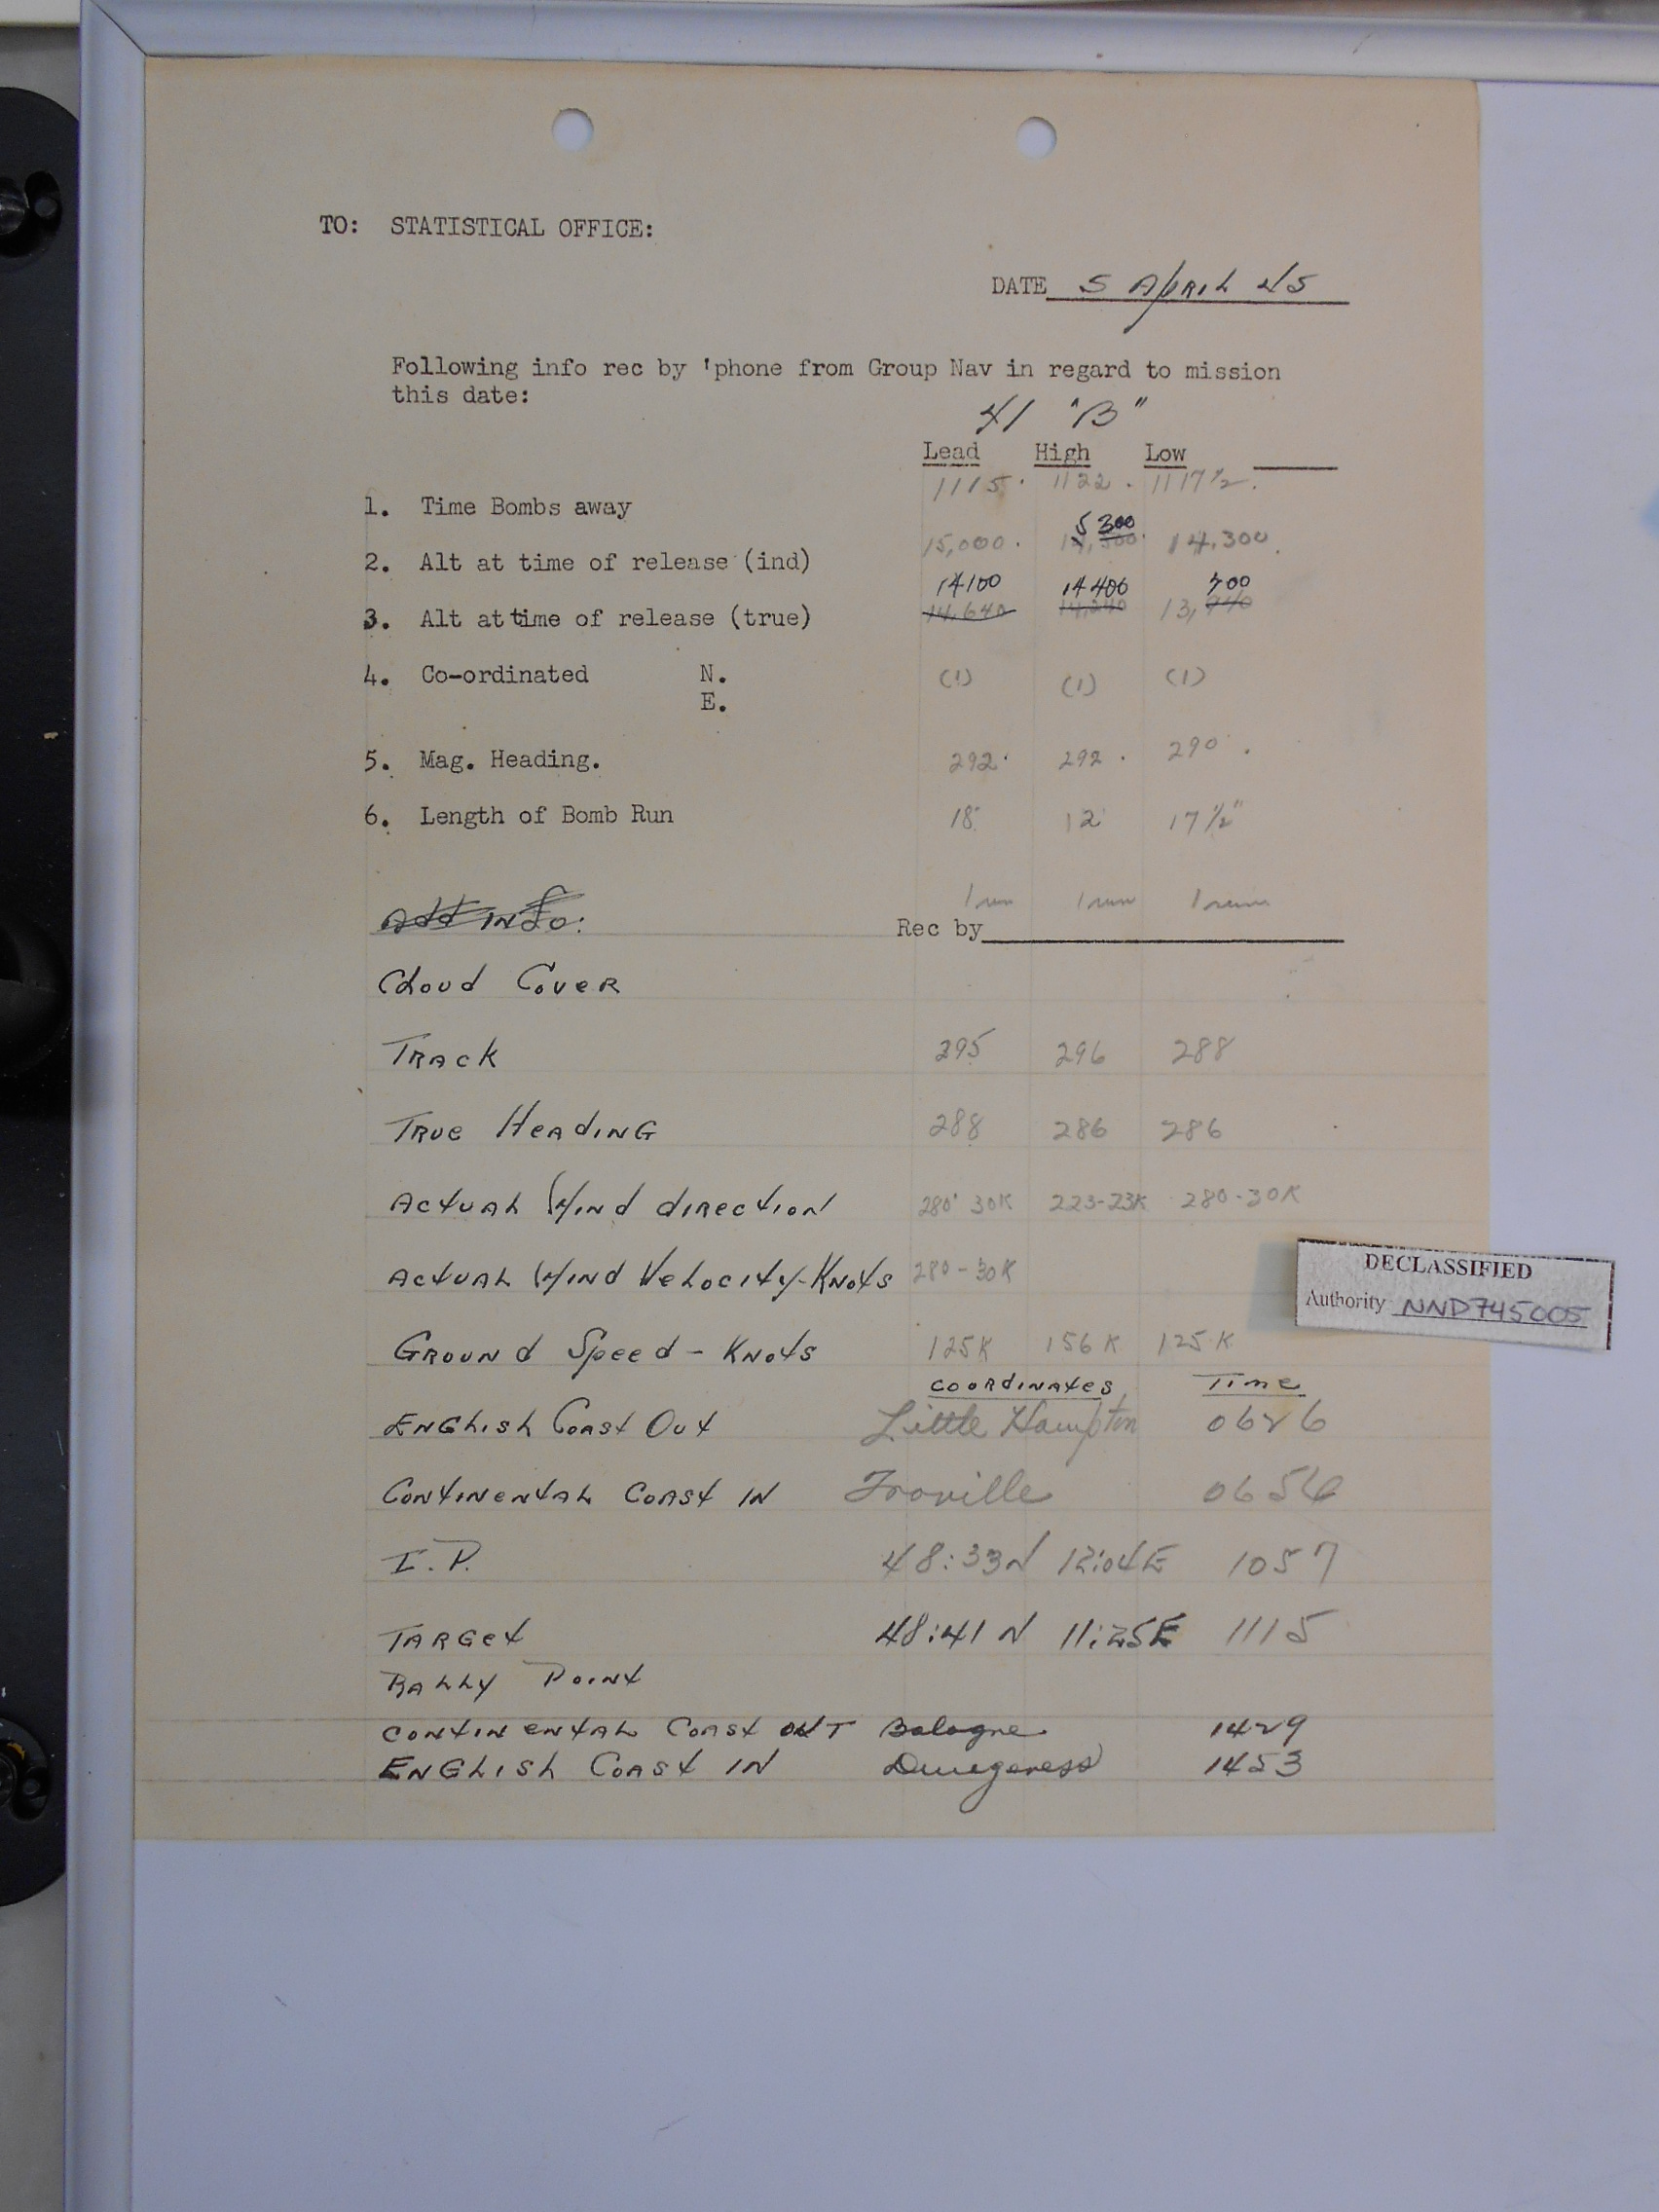 TO: STATISTICAL OFFICE:
DATE 5 APRIL 45
Following info rec by 'phone from Group Nav in regard to mission
this date:
41 "B"
Lead High Low
1115 1122 1117½
1. Time Bombs away
5 300
15,000 14,300
2. Alt at time of release (ind)
14100 14400 700
14,640 14,240 13,940
3. Alt at time of release (true)
4. Co-ordinated N. (1) (1) (1)
E.
5. Mag. Heading. 292 292 290
6. Length of Bomb Run 18 12 17½
1 run 1 run 1 run
Add info:
Rec by
Cloud Cover
Track 295 296 288
True Heading 288 286 286
Actual Wind direction 280° 30K 223-23K 280-30K
Actual Wind Velocity-Knots 280-30K
Ground Speed - Knots 125K 156K 125K
coordinates Time
English Coast Out Little Hampton 0626
Continental Coast IN Troville 0656
I.P. 48:33N 12:04E 1057
Target 48:41N 11:25E 1115
Rally Point
Continental Coast OUT Bologne 1429
English Coast IN Dungeness 1453
DECLASSIFIED
Authority NND745005